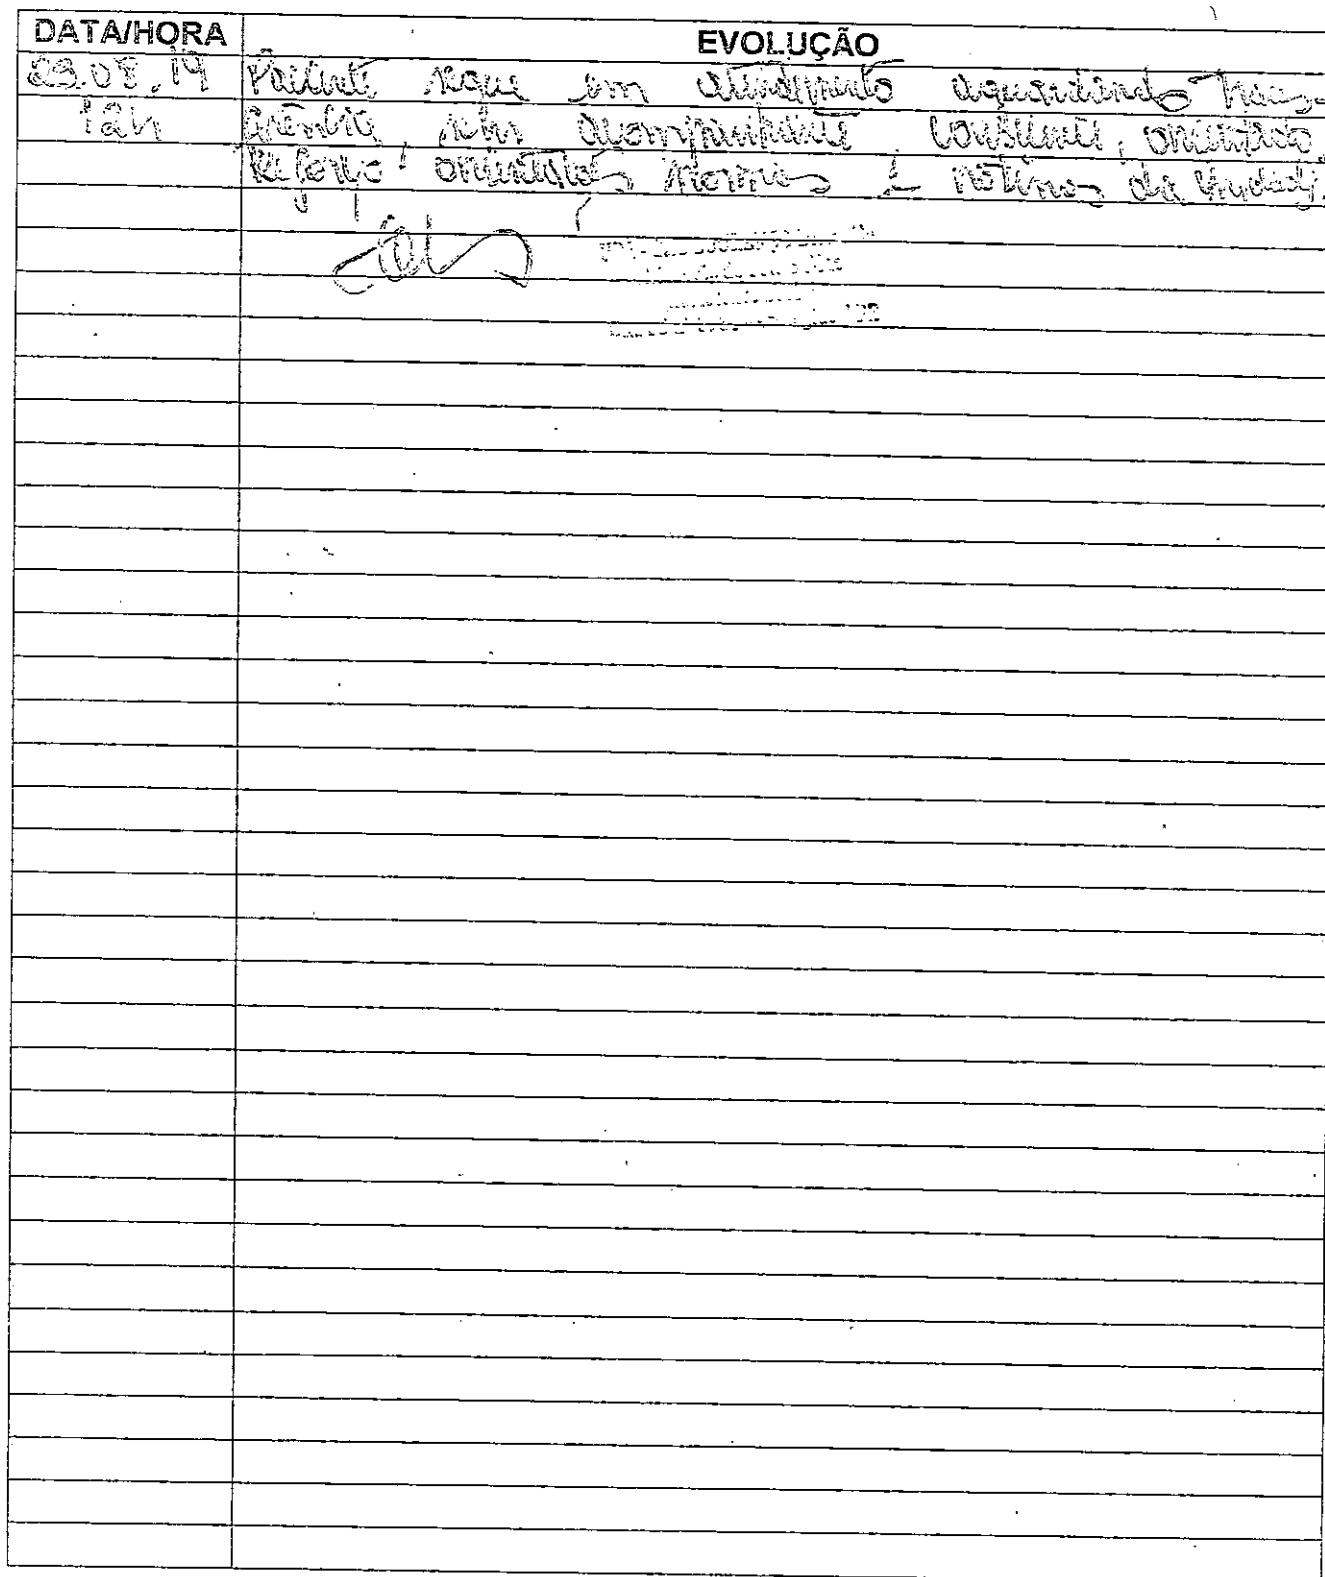 DATA/HORA EVOLUÇÃO
23.08.19 Paciente segue em atendimento aguardando trans-
12h ferência, sem acompanhante, consciente, orientado.
Reforço orientações normas e rotinas da unidade.